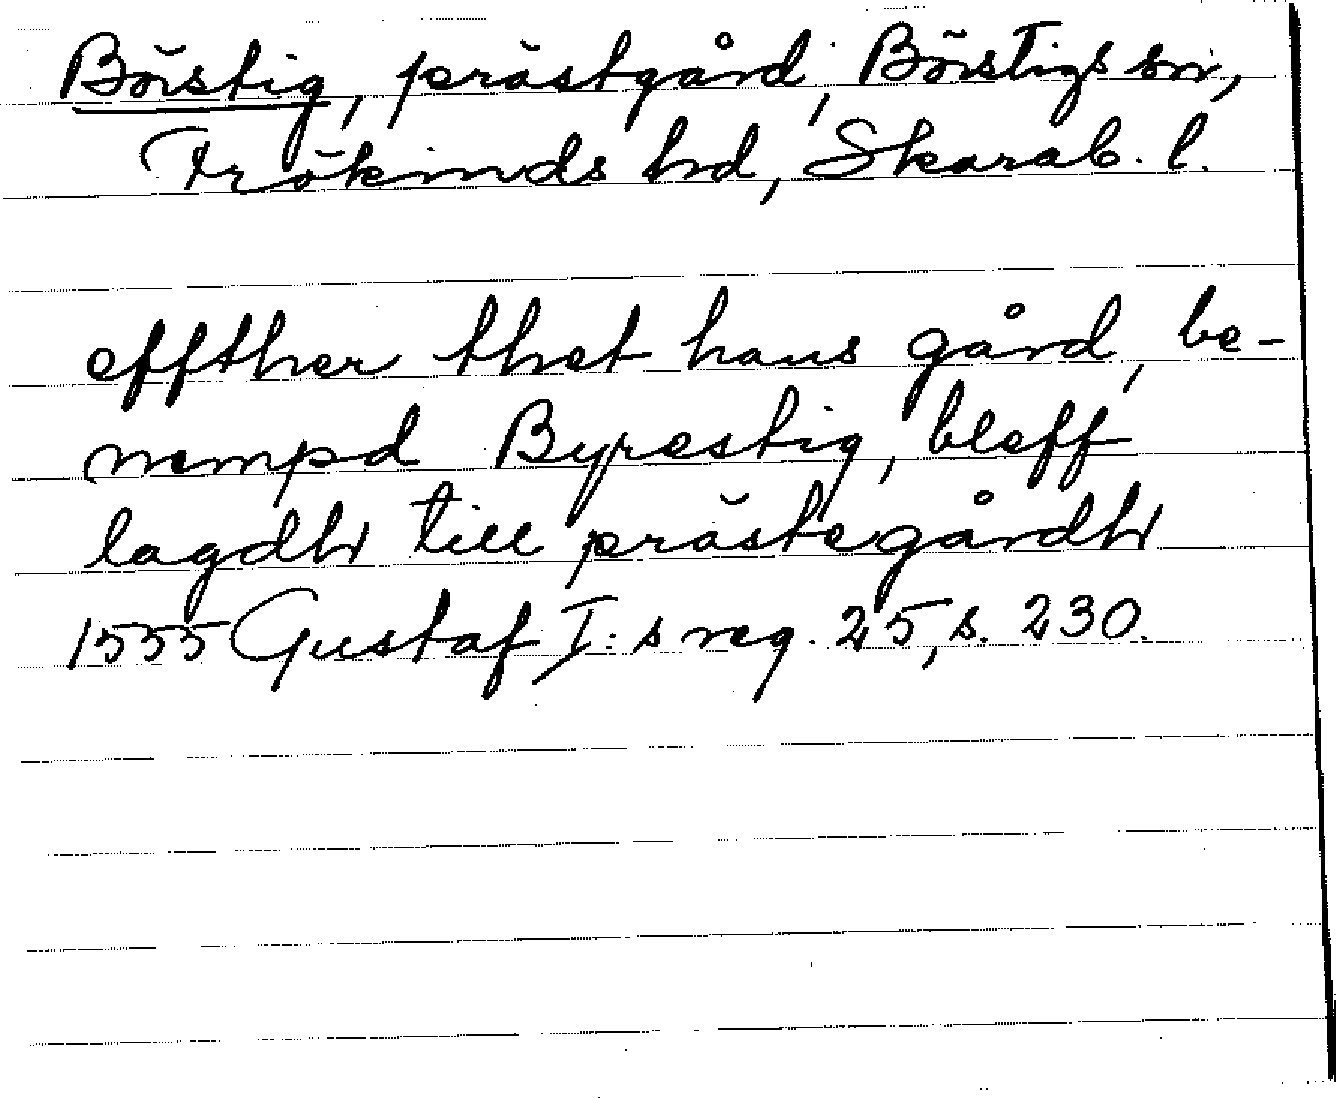 Börstig, prästgård, Börstigs sn,
Frökinds hd, Skarab. l.
effther thet hans gård, be-
nempd Byrestig, bleff
lagdh till prästegårdh
1555 Gustaf I:s reg. 25, s. 230.